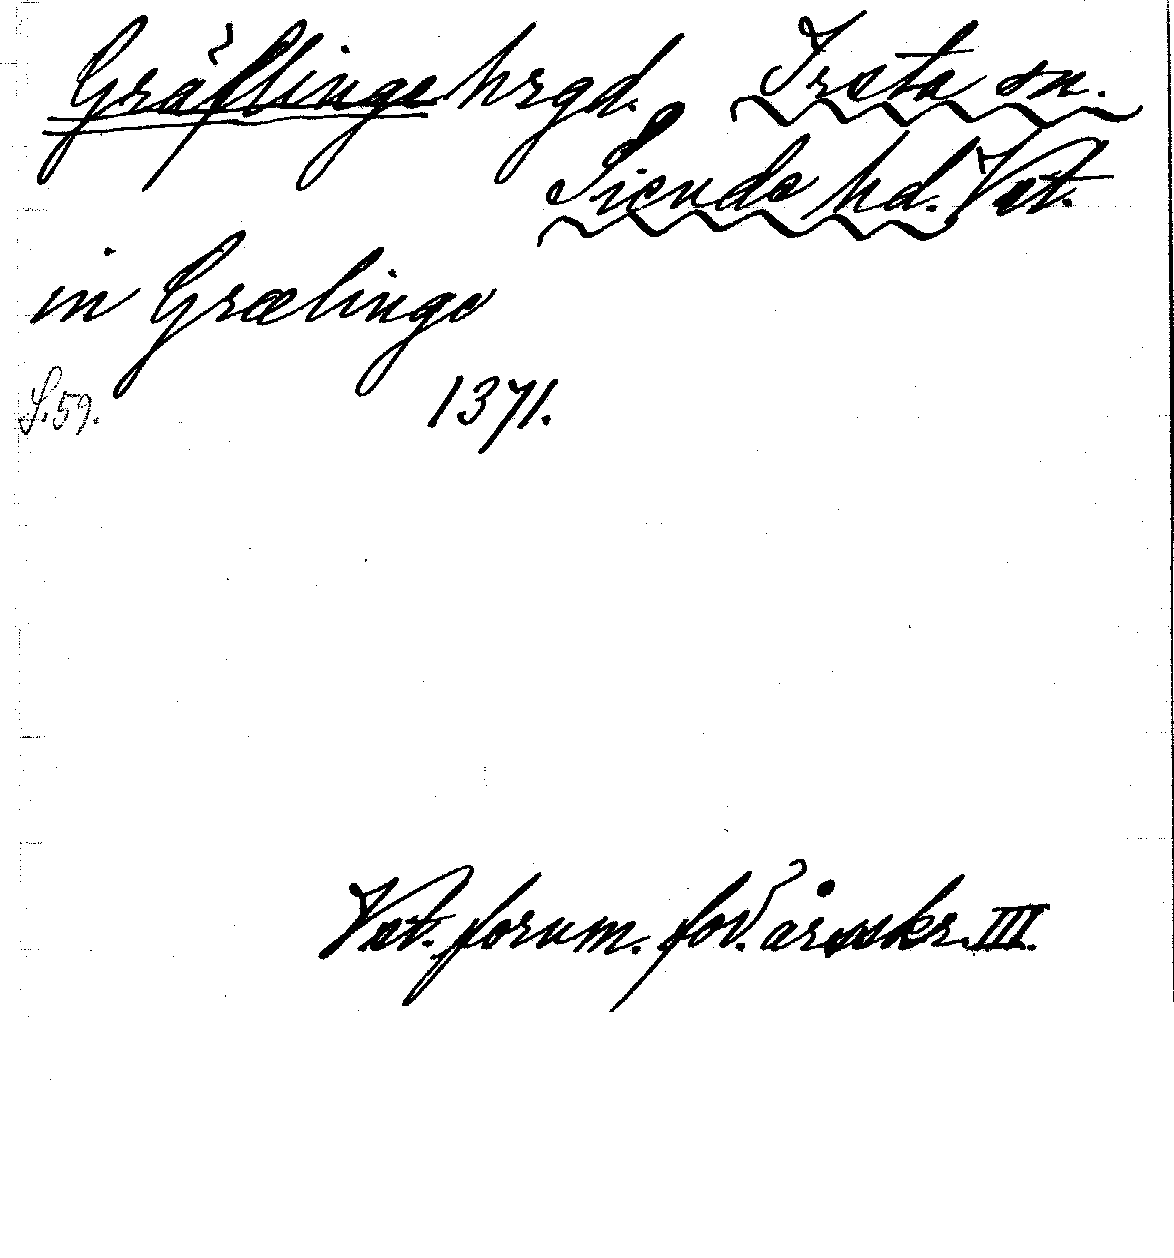 Gräflinge hrgd. Irsta sn.
Siende hd. Vst.
in Grælinge
S.59. 1371.
Vst. fornm. för. årsskr. III.